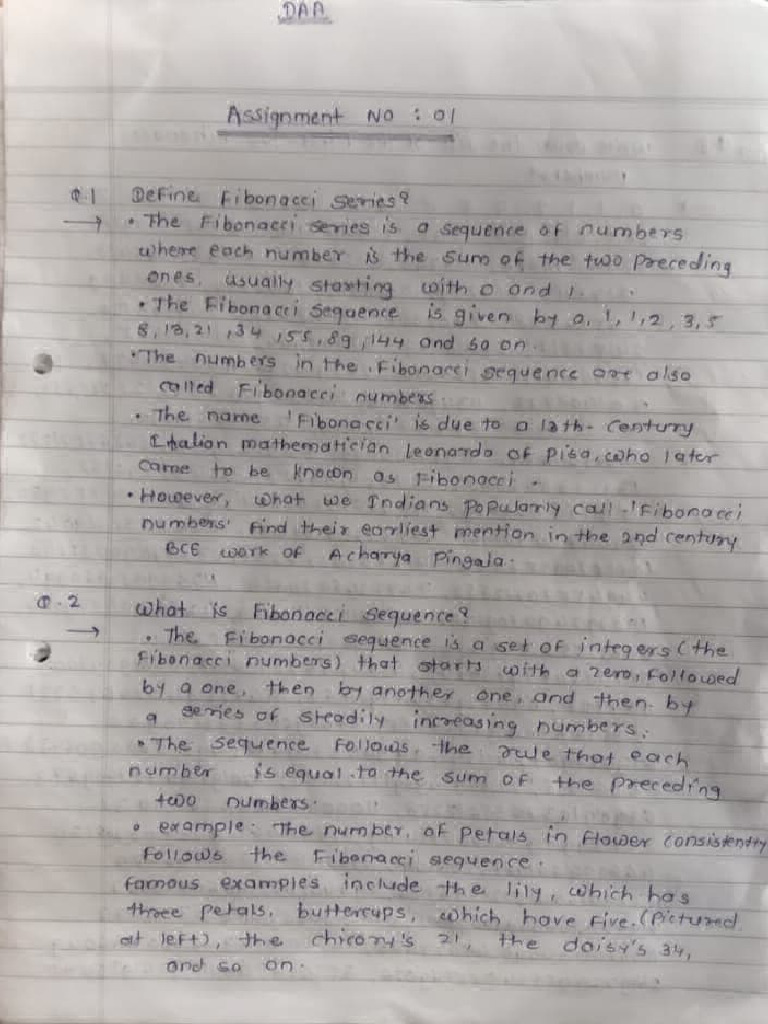 DAA
Assignment No : 01
Q.1 Define Fibonacci series?
→ • The Fibonacci series is a sequence of numbers
where each number is the sum of the two preceding
ones, usually starting with 0 and 1.
• The Fibonacci sequence is given by 0, 1, 1, 2, 3, 5
8, 13, 21, 34, 55, 89, 144 and so on.
• The numbers in the Fibonacci sequence are also
called Fibonacci numbers
• The name 'Fibonacci' is due to a 12th- century
Italian mathematician leonardo of Pisa, who later
came to be known as Fibonacci.
• However, what we Indians popularly call 'Fibonacci
numbers' find their earliest mention in the 2nd century
BCE work of Acharya Pingala.
Q.2 What is Fibonacci sequence?
→ • The Fibonacci sequence is a set of integers (the
Fibonacci numbers) that starts with a zero, followed
by a one, then by another one, and then by
a series of steadily increasing numbers.
• The sequence follows the rule that each
number is equal to the sum of the preceding
two numbers.
• example: The number of petals in flower consistently
follows the Fibonacci sequence.
famous examples include the lily, which has
three petals, buttercups, which have five (pictured
at left), the chicory's 21, the daisy's 34,
and so on.